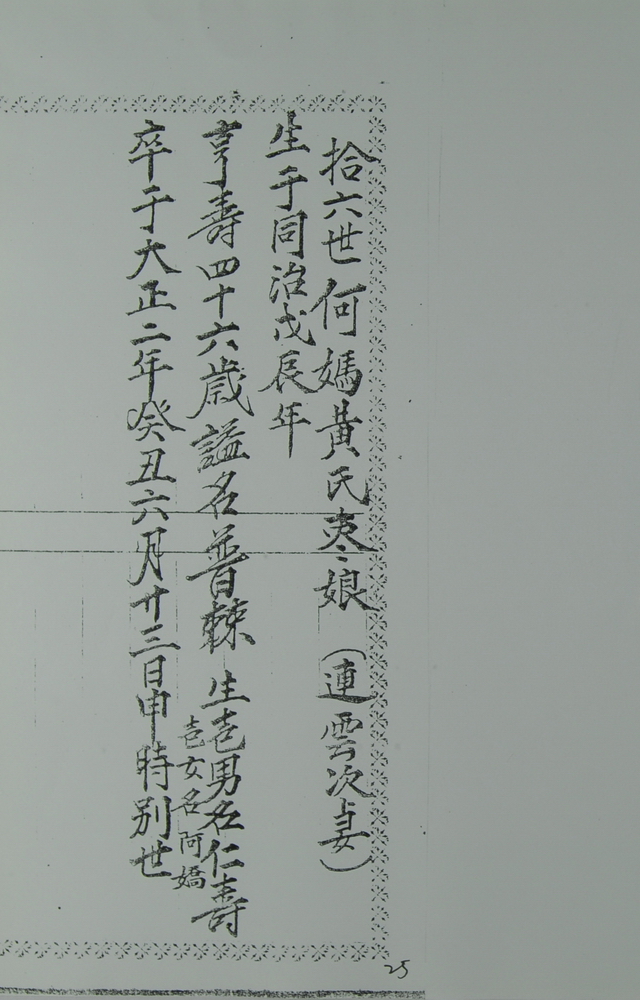 拾六世何媽黃氏枣娘（連雲次妻）
生于同治戊辰年
享壽四十六歲謚名普棘 生壱男名仁壽
壱女名阿嬌
卒于大正二年癸丑六月廿三日申時別世
25